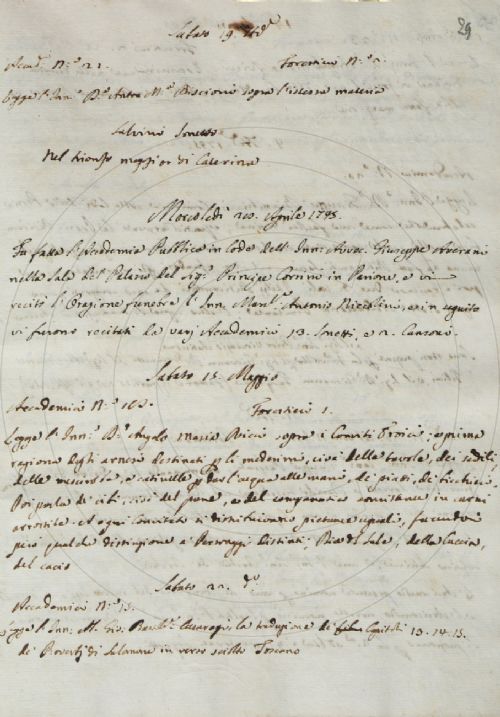 29
Sabato 19. d.º
Acad. N.º 21. Forestieri N.º 2.
Legge l'Inn.º D.r Anton M.ª Biscioni sopra l'istessa materia
Salvini Sonetto
Nel trionfo maggior di Caterina
Mercoledì 20. Aprile 1745.
Fu fatta l'Accademia Pubblica in lode dell' Inn. Avvoc. Giuseppe Averani
nella Sala del Palazzo del Sig.r Principe Corsini in Parione, e vi
recitò l'Orazione funebre l'Inn. March.e Antonio Niccolini, e in seguito
vi furono recitati da varj Accademici 13. Sonetti, e 2. Canzoni.
Sabato 15. Maggio
Accademici N.º Forestieri 1.
Legge l'Inn.º D.r Angelo Maria Ricci sopra i Conviti Eroici; e prima
ragiona degli arnesi destinati p li medesimi, cioè delle tavole, dei sedili
delle e catinelle p dar l'acqua alle mani, de' piatti, de' bicchieri.
Poi parla di cibi, cioè del pane, e del companatico consistente in carni
arrostite. et ogni Convitato si distribuivano pietanze uguali, facendosi
però qualche distinzione a' Personaggi Distinti, del Sale, della Caccia,
del cacio
Sabato 22. d.º
Accademici N.º 15.
Legge l'Inn. M. Gio. la traduzione de' Capitoli 13. 14. 15.
de' Proverbj di Salomone in verso sciolto Toscano